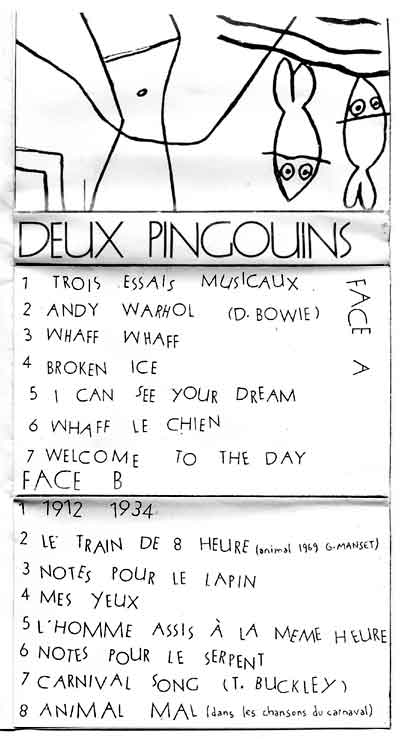 DEUX PINGOUINS
FACE A
1 TROIS ESSAIS MUSICAUX
2 ANDY WARHOL (D. BOWIE)
3 WHAFF WHAFF
4 BROKEN ICE
5 I CAN SEE YOUR DREAM
6 WHAFF LE CHIEN
7 WELCOME TO THE DAY
FACE B
1 1912 1934
2 LE TRAIN DE 8 HEURE (animal 1969 G. MANSET)
3 NOTES POUR LE LAPIN
4 MES YEUX
5 L'HOMME ASSIS À LA MEME HEURE
6 NOTES POUR LE SERPENT
7 CARNIVAL SONG (T. BUCKLEY)
8 ANIMAL MAL (dans les chansons du carnaval)